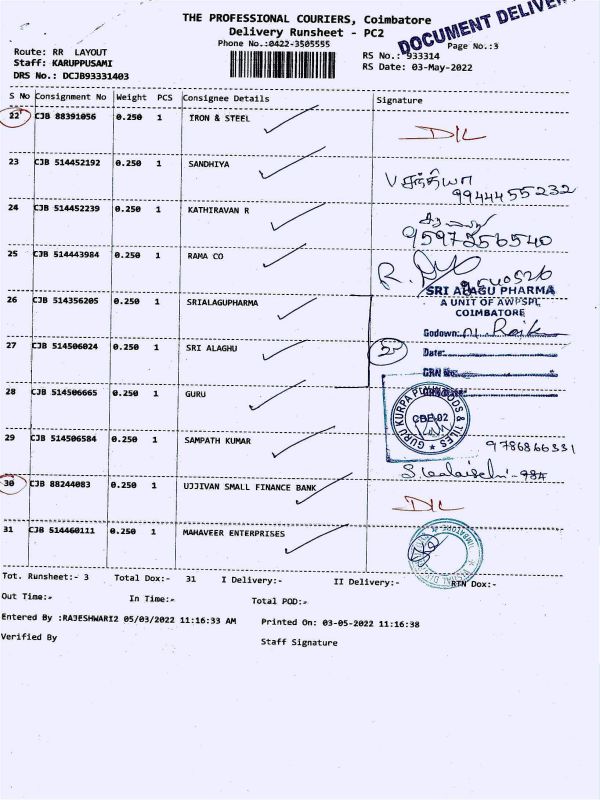 THE PROFESSIONAL COURIERS, Coimbatore
Delivery Runsheet - PC2
DOCUMENT DELIVER
Phone No.:0422-3505555
Page No.:3
Route: RR LAYOUT
RS No.: 933314
Staff: KARUPPUSAMI
RS Date: 03-May-2022
DRS No.: DCJB93331403
S No Consignment No Weight PCS Consignee Details Signature
22 CJB 88391056 0.250 1 IRON & STEEL D/L
23 CJB 514452192 0.250 1 SANDHIYA
9944455232
24 CJB 514452239 0.250 1 KATHIRAVAN R
9597256540
25 CJB 514443984 0.250 1 RAMA CO
SRI ALAGU PHARMA
26 CJB 514356205 0.250 1 SRIALAGUPHARMA A UNIT OF AWPSPL,
COIMBATORE
Godown:
27 CJB 514506024 0.250 1 SRI ALAGHU Date:
GRN No:
28 CJB 514506665 0.250 1 GURU
CBE-02
29 CJB 514506584 0.250 1 SAMPATH KUMAR
9786866331
30 CJB 88244083 0.250 1 UJJIVAN SMALL FINANCE BANK
D/L
31 CJB 514460111 0.250 1 MAHAVEER ENTERPRISES
Tot. Runsheet:- 3 Total Dox:- 31 I Delivery:- II Delivery:- RTN Dox:-
Out Time:- In Time:- Total POD:-
Entered By :RAJESHWARI2 05/03/2022 11:16:33 AM Printed On: 03-05-2022 11:16:38
Verified By Staff Signature